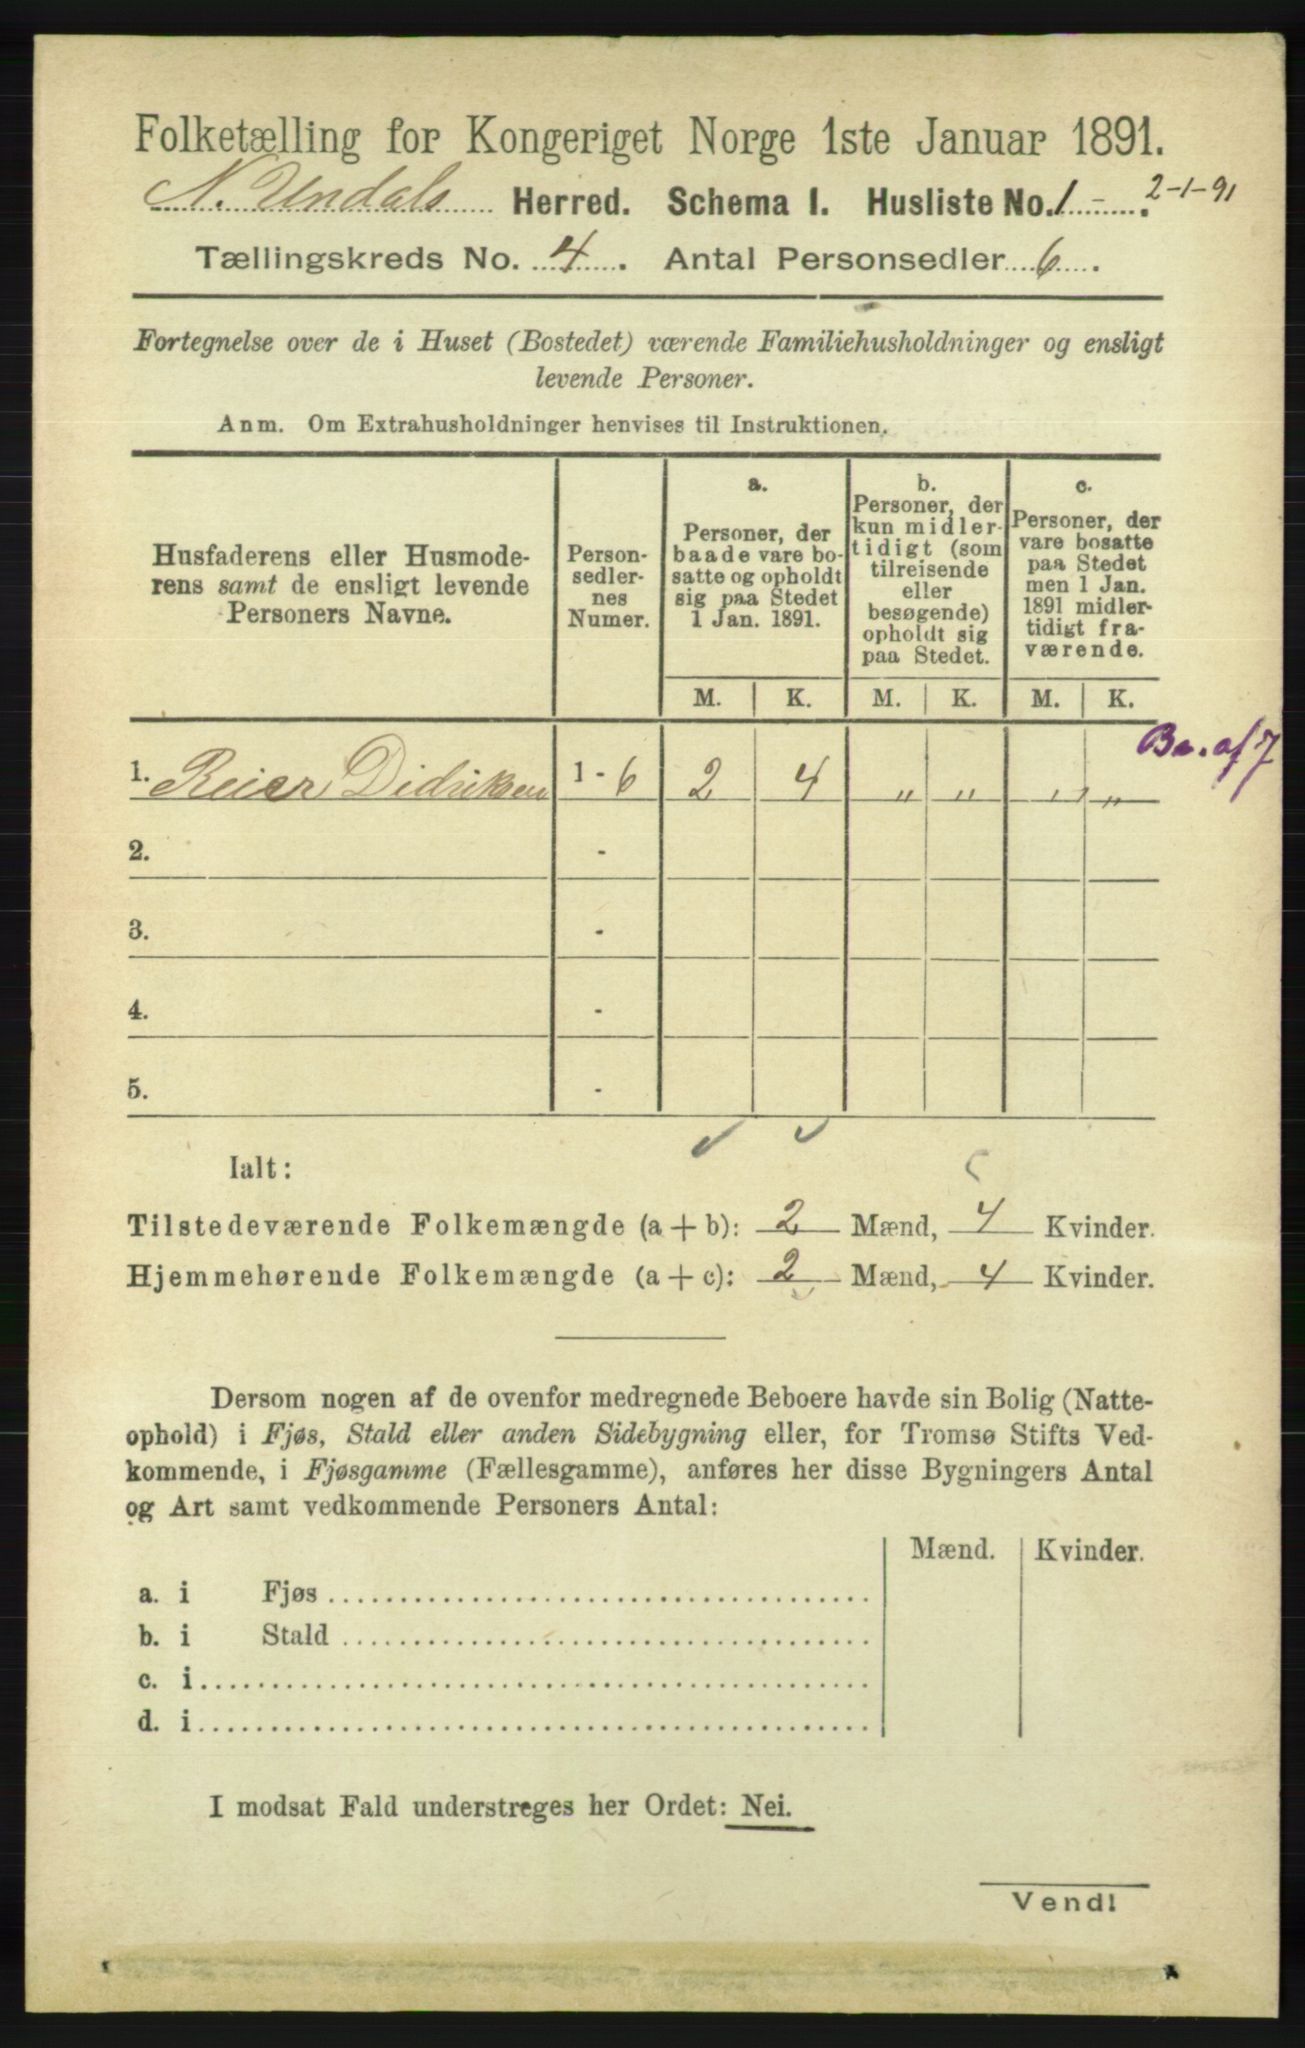 Folketælling for Kongeriget Norge 1ste Januar 1891.
N. Undals Herred. Schema I. Husliste No. 1 2-1-91
Tællingskreds No. 4. Antal Personsedler 6.
Fortegnelse over de i Huset (Bostedet) værende Familiehusholdninger og ensligt
levende Personer.
Anm. Om Extrahusholdninger henvises til Instruktionen.
Husfaderens eller Husmode-
rens samt de ensligt levende
Personers Navne.
Person-
sedler-
nes
Numer.
a.
Personer, der
baade vare bo-
satte og opholdt
sig paa Stedet
1 Jan. 1891.
b.
Personer, der
kun midler-
tidigt (som
tilreisende
eller
besøgende)
opholdt sig
paa Stedet.
c.
Personer, der
vare bosatte
paa Stedet
men 1 Jan.
1891 midler-
tidigt fra-
værende.
M. K. M. K. M. K.
Ba. af 7
1. Reier Didriksen 1 - 6 2 4 " " " "
2. -
3. -
4. -
5. -
Ialt:
Tilstedeværende Folkemængde (a + b): 2 Mænd, 4 Kvinder.
Hjemmehørende Folkemængde (a + c): 2 Mænd, 4 Kvinder.
Dersom nogen af de ovenfor medregnede Beboere havde sin Bolig (Natte-
ophold) i Fjøs, Stald eller anden Sidebygning eller, for Tromsø Stifts Ved-
kommende, i Fjøsgamme (Fællesgamme), anføres her disse Bygningers Antal
og Art samt vedkommende Personers Antal:
Mænd. Kvinder.
a. i Fjøs
b. i Stald
c. i
d. i
I modsat Fald understreges her Ordet: Nei.
Vend!